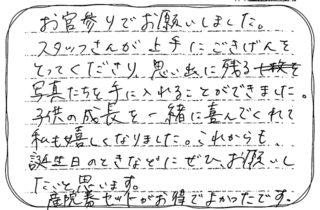 お宮参りでお願いしました。
スタッフさんが上手にごきげんを
とってくださり、思い出に残る
写真たちを手に入れることができました。
子供の成長を一緒に喜んでくれて
私も嬉しくなりました。これからも、
誕生日のときなどにぜひ、お願いし
たいと思います。
産院着セットがお得でよかったです。